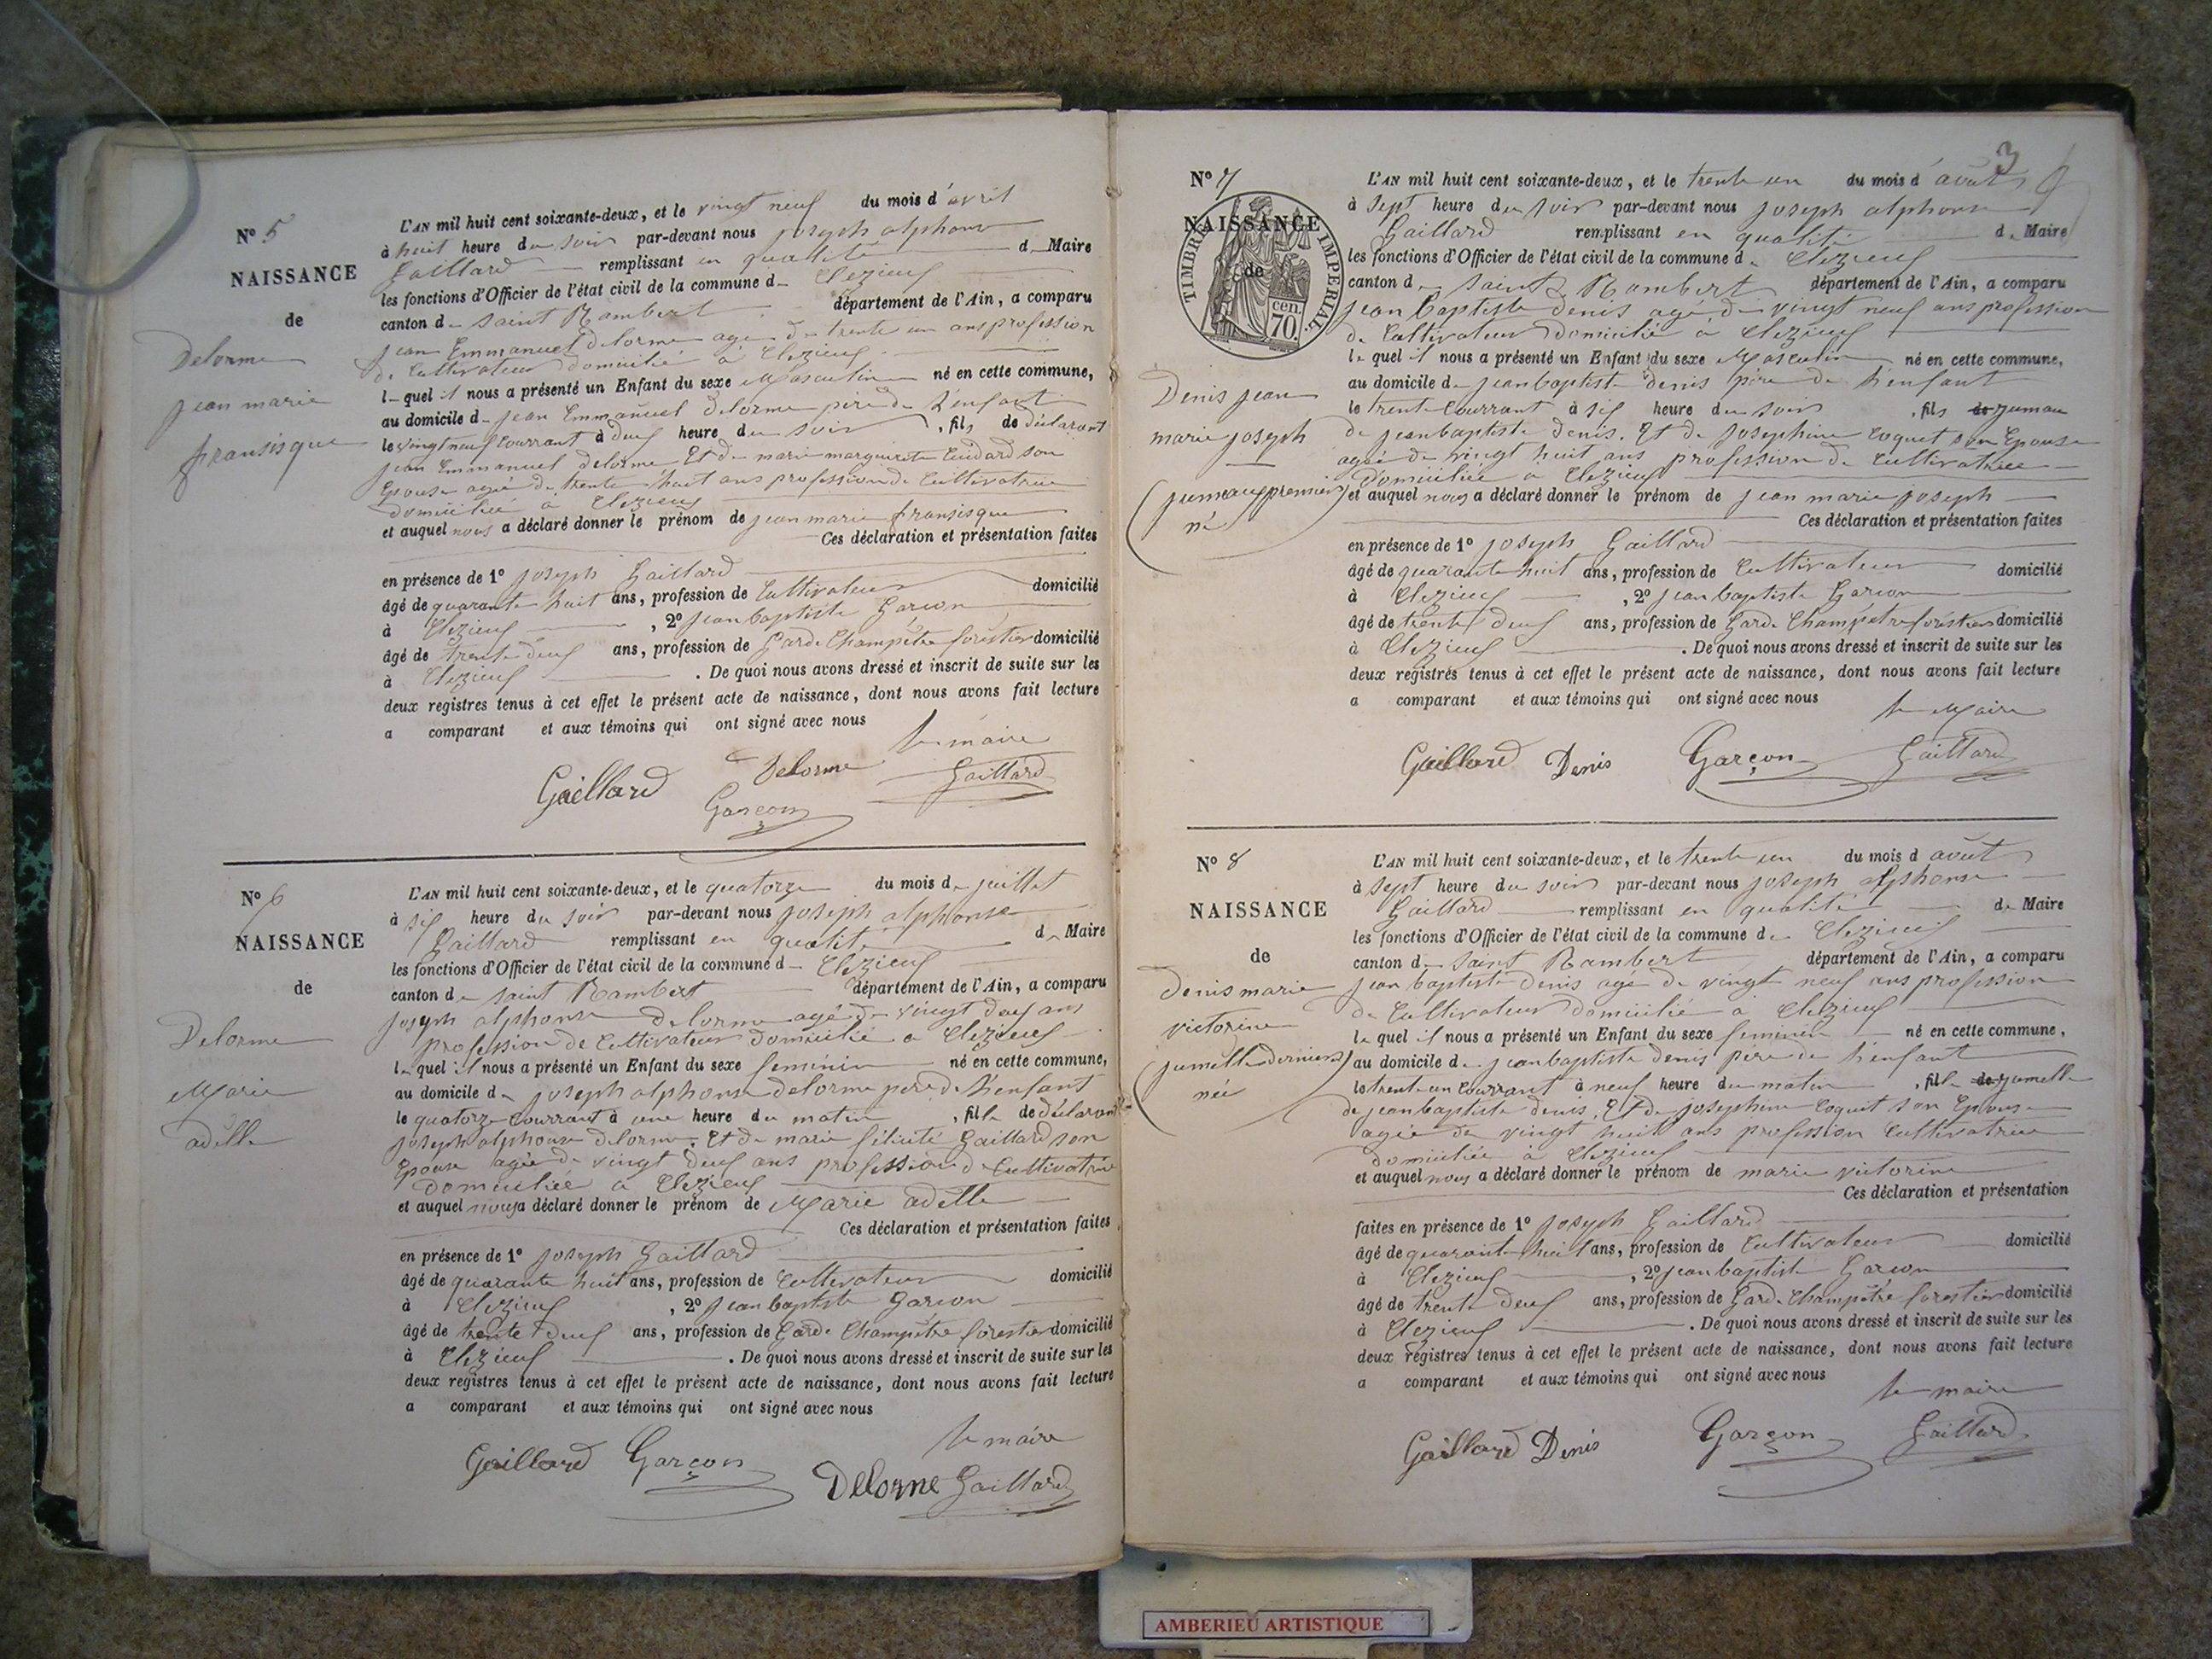 N° 5
NAISSANCE
de
Delorme
jean marie
fransisque
L'AN mil huit cent soixante-deux, et le vingt neuf du mois d'avril
à huit heure du soir par-devant nous joseph alphonse
Gaillard remplissant en qualité de Maire
les fonctions d'Officier de l'état civil de la commune de Clezieuf
canton de saint Rambert département de l'Ain, a comparu
jean Emmanuel delorme agé de trente un ans profession
de Cultivateur domicilié à Clezieuf
lequel il nous a présenté un Enfant du sexe Masculin né en cette commune,
au domicile de jean Emmanuel delorme père de l'enfant
le vingt neuf Courrant à deuf heure du soir, fils de déclarant
jean Emmanuel delorme Et de marie marguerite son
Epouse agée de trente huit ans profession de Cultivatrice
domiciliée à Clezieuf
et auquel nous a déclaré donner le prénom de jean marie fransisque
Ces déclaration et présentation faites
en présence de 1° joseph Gaillard
âgé de quarante huit ans, profession de Cultivateur domicilié
à Clezieuf, 2° jean baptiste Garcon
âgé de trente deuf ans, profession de Garde Champêtre forestier domicilié
à Clezieuf. De quoi nous avons dressé et inscrit de suite sur les
deux registres tenus à cet effet le présent acte de naissance, dont nous avons fait lecture
a comparant et aux témoins qui ont signé avec nous
le maire
Gaillard Delorme Gaillard
Garçon
N° 6
NAISSANCE
de
Delorme
Marie
adelle
L'AN mil huit cent soixante-deux, et le quatorze du mois de juillet
à sif heure du soir par-devant nous joseph alphonse
Gaillard remplissant en qualité de Maire
les fonctions d'Officier de l'état civil de la commune d Clezieuf
canton de saint Rambert département de l'Ain, a comparu
joseph alphonse delorme agé de vingt deuf ans
profession de Cultivateur domicilié a Clezieuf
lequel il nous a présenté un Enfant du sexe feminin né en cette commune,
au domicile de joseph alphonse delorme père de l'enfant
le quatorze Courrant à une heure du matin, fille de déclarant
joseph alphonse delorme. Et de marie félicité Gaillard son
Epouse agée de vingt deuf ans profession de Cultivatrice
domiciliée a Clezieuf
et auquel nous a déclaré donner le prénom de Marie adelle
Ces déclaration et présentation faites
en présence de 1° joseph Gaillard
âgé de quarante huit ans, profession de Cultivateur domicilié
à Clezieuf, 2° jean baptiste Garcon
âgé de trente deuf ans, profession de Garde Champêtre forestier domicilié
à Clezieuf. De quoi nous avons dressé et inscrit de suite sur les
deux registres tenus à cet effet le présent acte de naissance, dont nous avons fait lecture
a comparant et aux témoins qui ont signé avec nous
le maire
Gaillard Garçon Delorme Gaillard
3
N° 7
NAISSANCE
de
TIMBRE IMPÉRIAL
70 cen.
Denis jean
marie joseph
(jumeauf premier
né)
L'AN mil huit cent soixante-deux, et le trente un du mois d'août
à sept heure du soir par-devant nous joseph alphonse
Gaillard remplissant en qualité de Maire
les fonctions d'Officier de l'état civil de la commune de Clezieuf
canton de saint Rambert département de l'Ain, a comparu
jean Baptiste denis agé de vingt neuf ans profession
de Cultivateur domicilié a Clezieuf
lequel il nous a présenté un Enfant du sexe Masculin né en cette commune,
au domicile de jean baptiste denis père de l'enfant
le trente Courrant à sif heure du soir, fils de jumau
de jean baptiste denis. Et de josephine Coquet son Epouse
agée de vingt huit ans profession de Cultivatrice
domiciliée a Clezieuf
et auquel nous a déclaré donner le prénom de jean marie joseph
Ces déclaration et présentation faites
en présence de 1° joseph Gaillard
âgé de quarante huit ans, profession de Cultivateur domicilié
à Clezieuf, 2° jean baptiste Garcon
âgé de trente deuf ans, profession de Garde Champêtre forestier domicilié
à Clezieuf. De quoi nous avons dressé et inscrit de suite sur les
deux registres tenus à cet effet le présent acte de naissance, dont nous avons fait lecture
a comparant et aux témoins qui ont signé avec nous
le Maire
Gaillard Denis Garçon Gaillard
N° 8
NAISSANCE
de
denis marie
victorine
(jumelle derniere
née)
L'AN mil huit cent soixante-deux, et le trente un du mois d août
à sept heure du soir par-devant nous joseph alphonse
Gaillard remplissant en qualité de Maire
les fonctions d'Officier de l'état civil de la commune de Clezieuf
canton de saint Rambert département de l'Ain, a comparu
jean baptiste denis agé de vingt neuf ans profession
de Cultivateur domicilié a Clezieuf
lequel il nous a présenté un Enfant du sexe feminin né en cette commune,
au domicile de jean baptiste denis père de l'enfant
le trente un Courrant à neuf heure du matin, fille de jumelle
de jean baptiste denis. Et de josephine Coquet son Epouse
agée de vingt huit ans profession Cultivatrice
domiciliée a Clezieuf
et auquel nous a déclaré donner le prénom de marie victorine
Ces déclaration et présentation
faites en présence de 1° joseph Gaillard
âgé de quarante huit ans, profession de Cultivateur domicilié
à Clezieuf, 2° jean baptiste Garcon
âgé de trente deuf ans, profession de Garde Champêtre forestier domicilié
à Clezieuf. De quoi nous avons dressé et inscrit de suite sur les
deux registres tenus à cet effet le présent acte de naissance, dont nous avons fait lecture
a comparant et aux témoins qui ont signé avec nous
le maire
Gaillard Denis Garçon Gaillard
AMBERIEU ARTISTIQUE